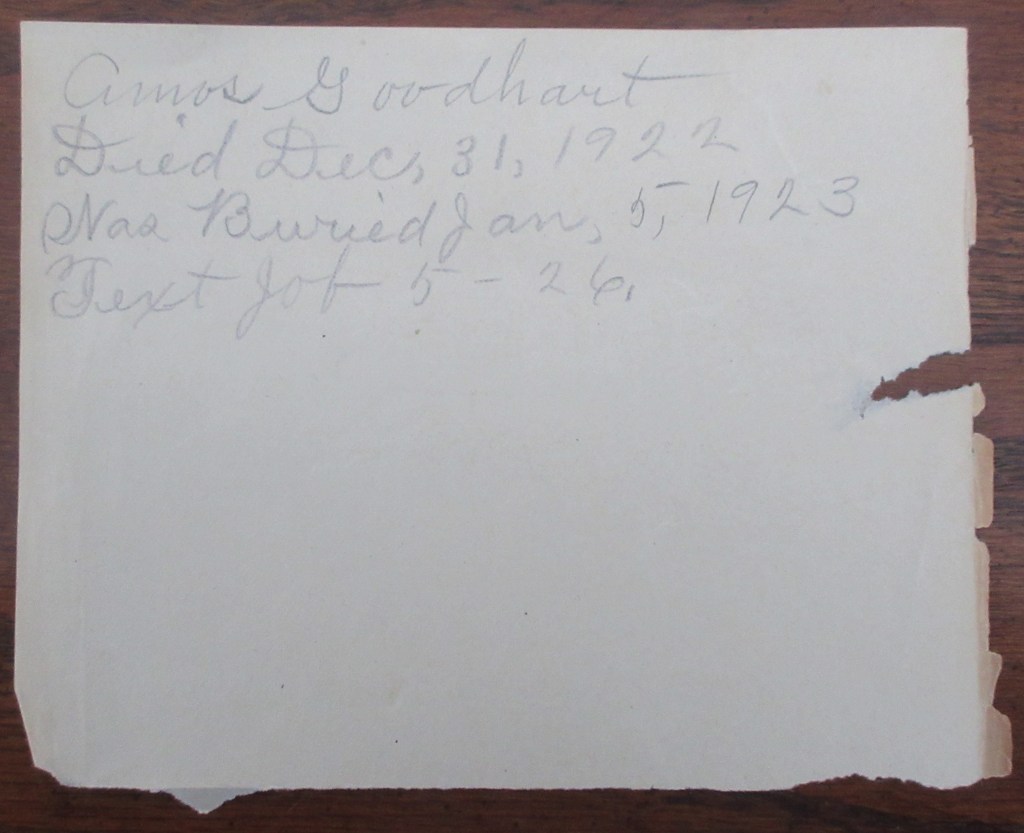 Amos Goodhart
Died Dec, 31, 1922
Was Buried Jan, 5, 1923
Text Job 5 - 26.